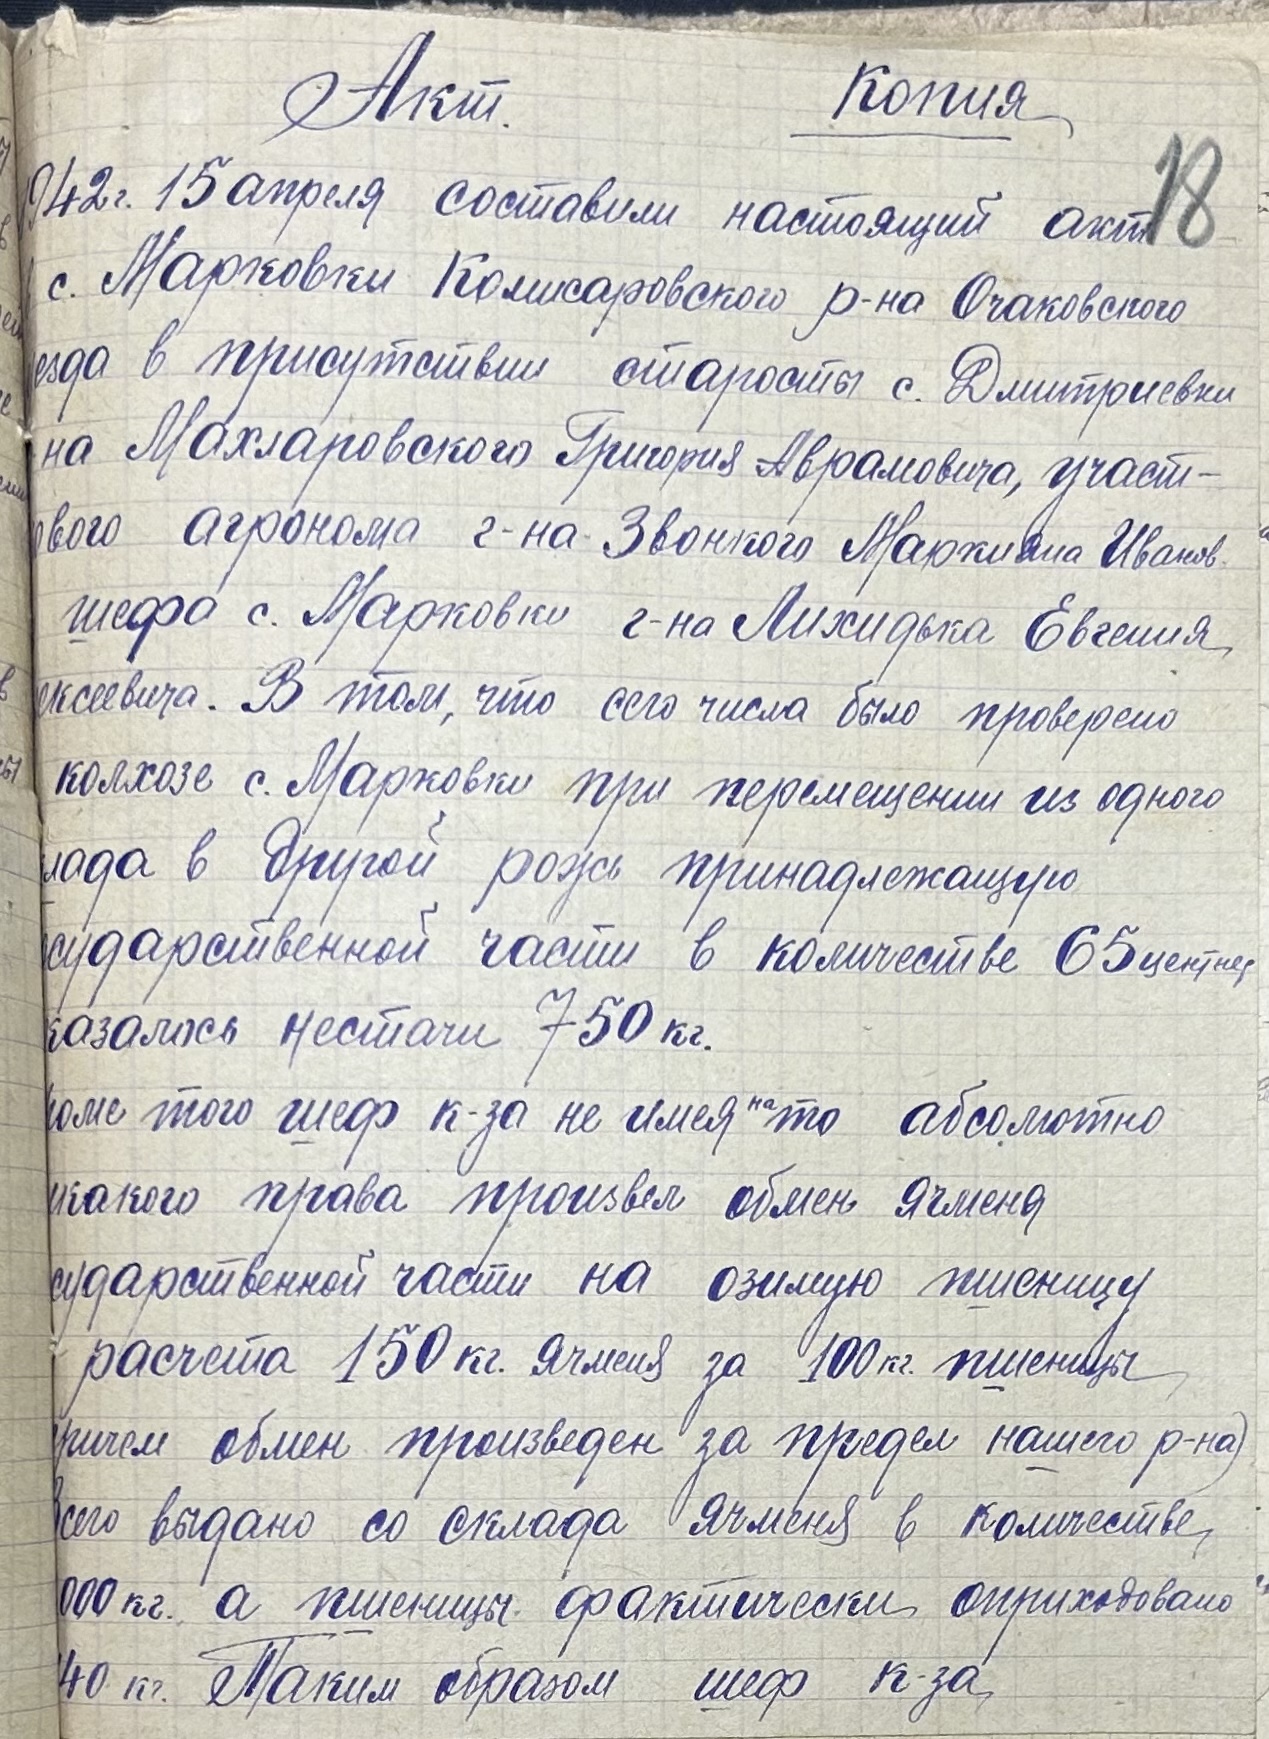 Акт. Копия
18
942г. 15 апреля составили настоящий акт
с. Марковки Комисаровского р-на Очаковского
езда в присутствии старосты с. Дмитриевки
на Махларовского Григория Аврамовича, участ-
ового агронома г-на Звонкого Маркияна Иванов.
шефа с. Марковки г-на Лихидька Евгения
ексеевича. В том, что сего числа было проверено
колхозе с. Марковки при перемещении из одного
лада в другой рожь принадлежащую
сударственной части в количестве 65 центнер
казалось нестачи 750 кг.
роме того шеф к-за не имея на то абсолютно
икакого права произвел обмен ячменя
сударственной части на озимую пшеницу
расчета 150 кг. ячменя за 100 кг. пшеницы
ричем обмен произведен за предел нашего р-на)
Всего выдано со склада ячменя в количестве
000 кг. а пшеницы фактически оприходовано
40 кг. Таким образом шеф к-за